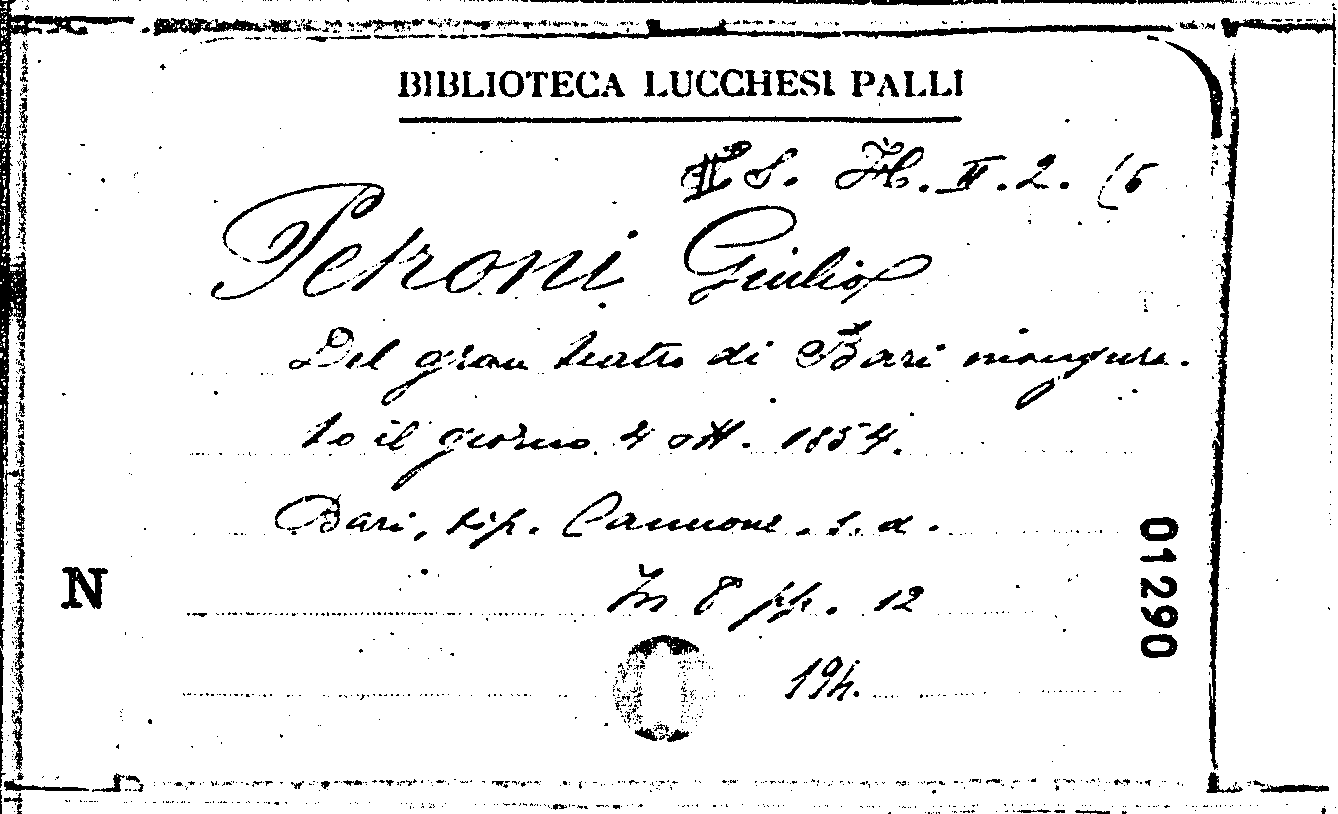 BIBLIOTECA LUCCHESI PALLI
S. H. II. 2. (5
Petroni Giulio
Del gran teatro di Bari inaugura.
to il giorno 4 ott. 1854.
Bari, tip. Cannone. s. d.
In 8 pp. 12
N
01290
194.